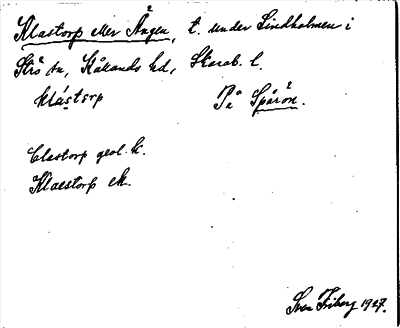 Klastorp eller Ången, t. under Lindholmen i
Strö sn, Kållands hd, Skarab. l.
klástorp På Spårön.
Clastorp geol. k.
Klaestorp ek.
Sven Friberg 1927.